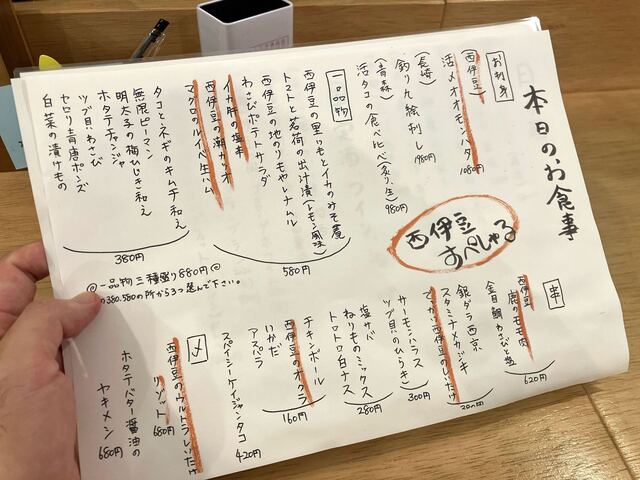 本日のお食事
西伊豆
すぺしゃる
お刺身
(西伊豆)
活〆オオモンハタ 1080円
(長崎)
釣りん絵刺し 980円
(青森)
活タコの食べ比べ(炙り、生) 980円
一品物
西伊豆の里いもとイカのみそ煮
トマトと茗荷の出汁漬(レモン風味)
西伊豆の地のりもやしナムル
わさびポテトサラダ
イカ肝の塩辛
西伊豆の潮カツオ
マグロのハイペ生ハム
580円
タコとネギのキムチ和え
無限ピーマン
明太子の梅ひじき和え
ホタテチャンジャ
ツブ貝わさび
セロリ青唐ポンズ
白菜の漬けもの
380円
◎一品物三種盛り880円◎
380.580の所から3つ選んで下さい。
串
西伊豆
鹿のモモ肉
金目鯛わさびと塩
620円
銀ダラ西京
スタミナメカジキ
でっかい西伊豆のしいたけ
サーモンハラス
ツブ貝のひもらぎ
300円
塩サバ
ねりものミックス
トロトロ白ナス
280円
チキンボール
西伊豆のオクラ
いかだ
アスパラ
160円
スパイシーケイジャンタコ
420円
〆
西伊豆のウルトラしいたけ
リゾット 680円
ホタテバター醤油の
ヤキメシ 680円